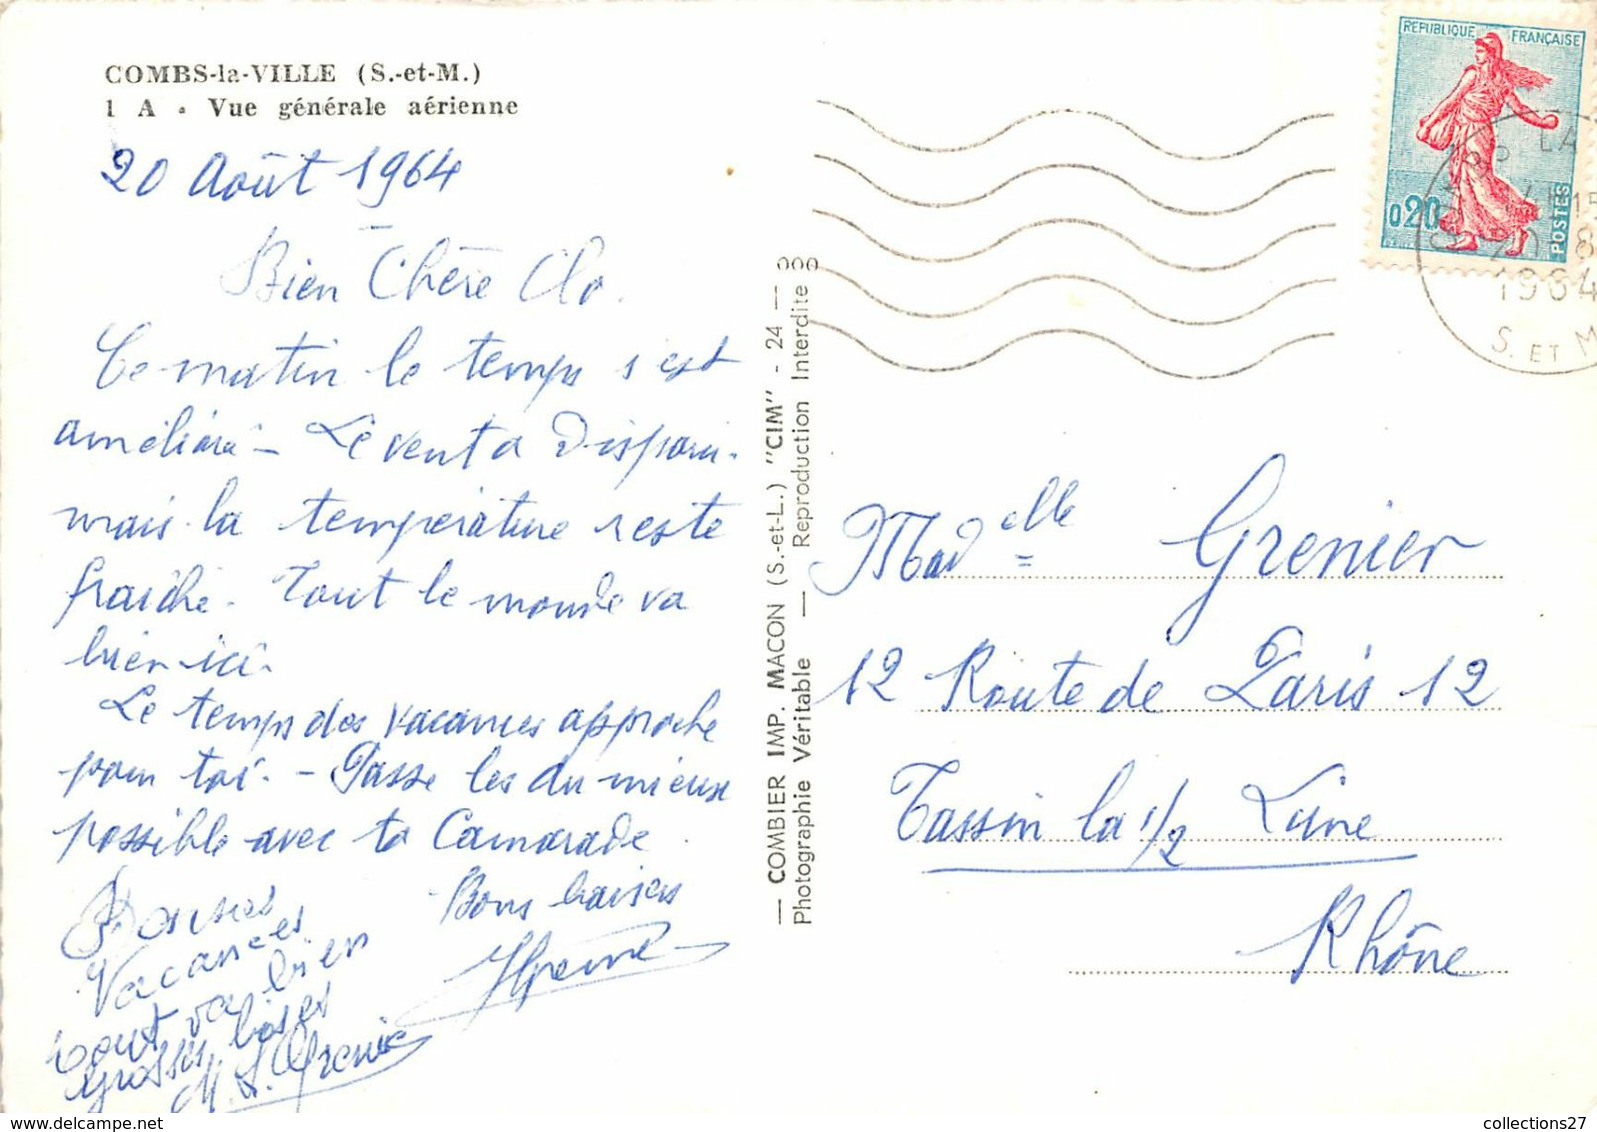 COMBS-la-VILLE (S.-et-M.)
1 A - Vue générale aérienne
20 Août 1964
Bien Chère Clo.
Ce matin le temps s'est
amélioré - Le vent a disparu.
mais la température reste
fraîche. Tout le monde va
bien ici.
Le temps des vacances approche
pour toi. - Passe les du mieux
possible avec ta Camarade.
Bons baisers
Bonnes
Vacances
tout va bien
grosses bises
M. L. Grenier
— COMBIER IMP. MACON (S.-et-L.) "CIM" - 24 —
Photographie Véritable — Reproduction Interdite
REPUBLIQUE FRANÇAISE
0,20
POSTES
LA
20 8
1964
S. ET M
Mad elle Grenier
12 Route de Paris 12
Tassin la 1/2 Lune
Rhône
collections27